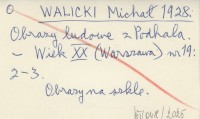 O WALICKI Michał 1928.
Obrazy ludowe z Podhala.
– Wiek XX (Warszawa) nr 19:
2–3.
Obrazy na szkle.